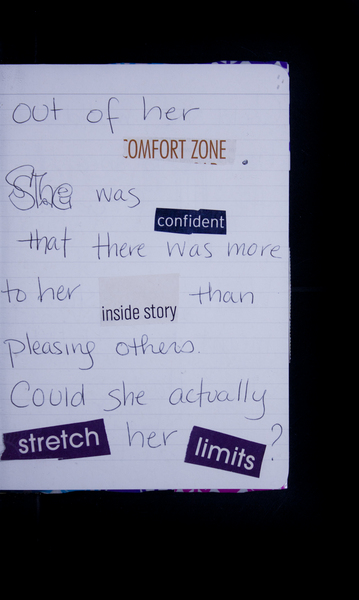 out of her
COMFORT ZONE.
She was
confident
that there was more
to her inside story than
pleasing others.
Could she actually
stretch her limits?